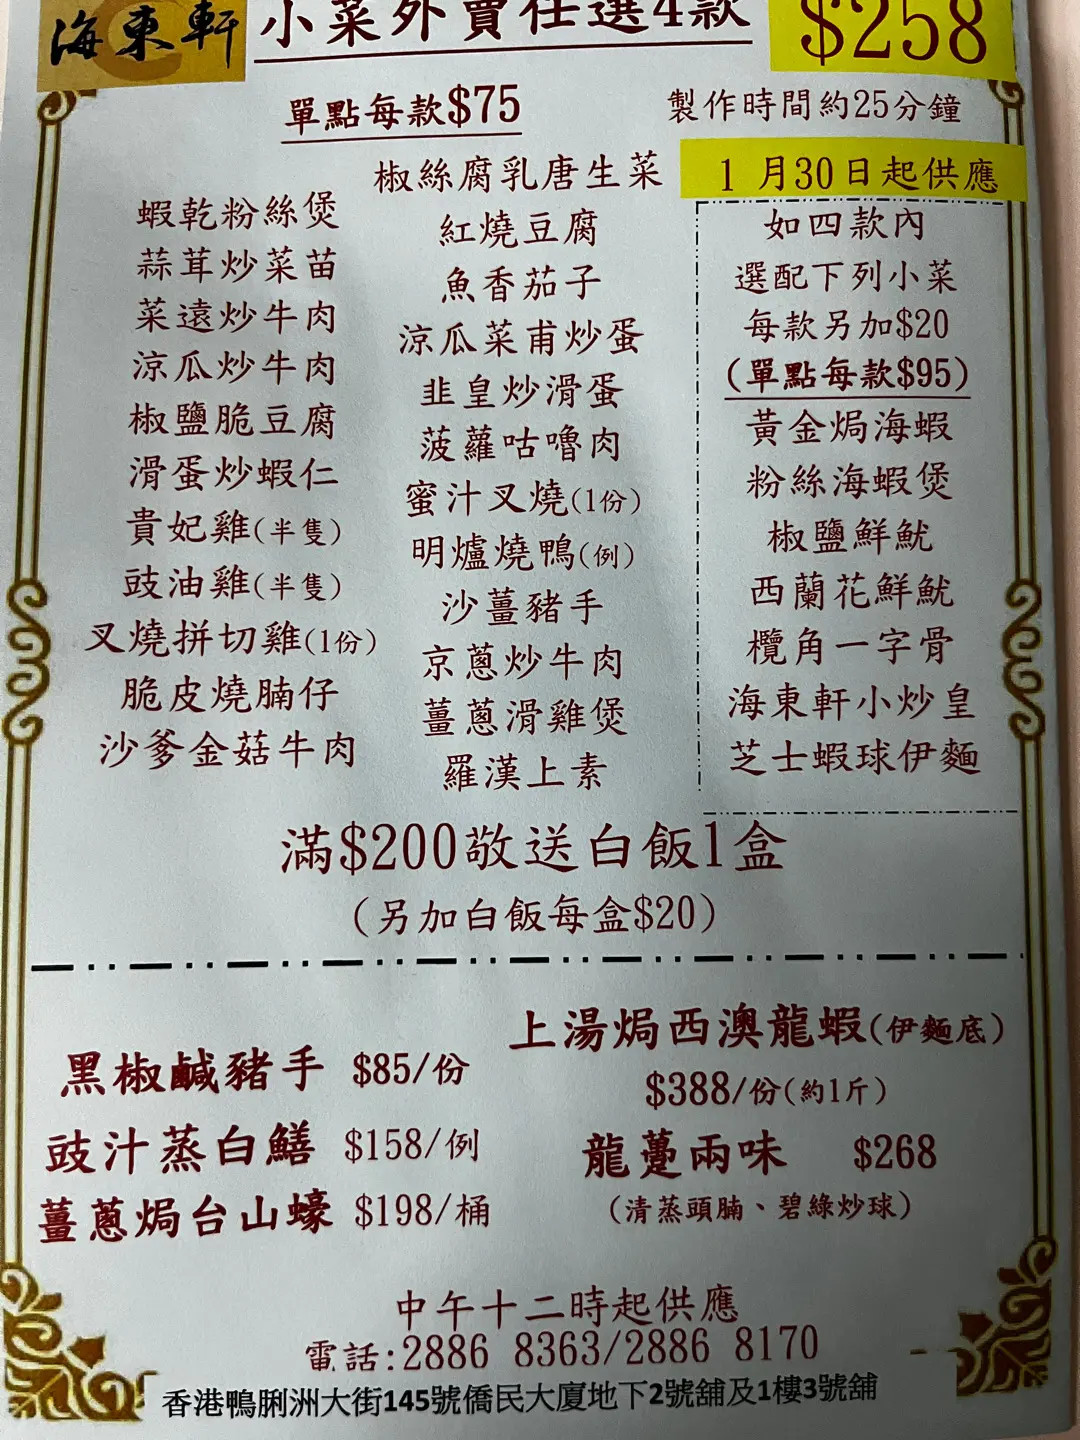 海東軒
小菜外賣任選4款
$258
單點每款$75
製作時間約25分鐘
蝦乾粉絲煲
蒜茸炒菜苗
菜遠炒牛肉
涼瓜炒牛肉
椒鹽脆豆腐
滑蛋炒蝦仁
貴妃雞(半隻)
豉油雞(半隻)
叉燒拼切雞(1份)
脆皮燒腩仔
沙爹金菇牛肉
椒絲腐乳唐生菜
紅燒豆腐
魚香茄子
涼瓜菜甫炒蛋
韭皇炒滑蛋
菠蘿咕嚕肉
蜜汁叉燒(1份)
明爐燒鴨(例)
沙薑豬手
京蔥炒牛肉
薑蔥滑雞煲
羅漢上素
1月30日起供應
如四款內
選配下列小菜
每款另加$20
(單點每款$95)
黃金焗海蝦
粉絲海蝦煲
椒鹽鮮魷
西蘭花鮮魷
欖角一字骨
海東軒小炒皇
芝士蝦球伊麵
滿$200敬送白飯1盒
(另加白飯每盒$20)
黑椒鹹豬手 $85/份
豉汁蒸白鱔 $158/例
薑蔥焗台山蠔 $198/桶
上湯焗西澳龍蝦(伊麵底)
$388/份(約1斤)
龍躉兩味 $268
(清蒸頭腩、碧綠炒球)
中午十二時起供應
電話:2886 8363/2886 8170
香港鴨脷洲大街145號僑民大廈地下2號舖及1樓3號舖